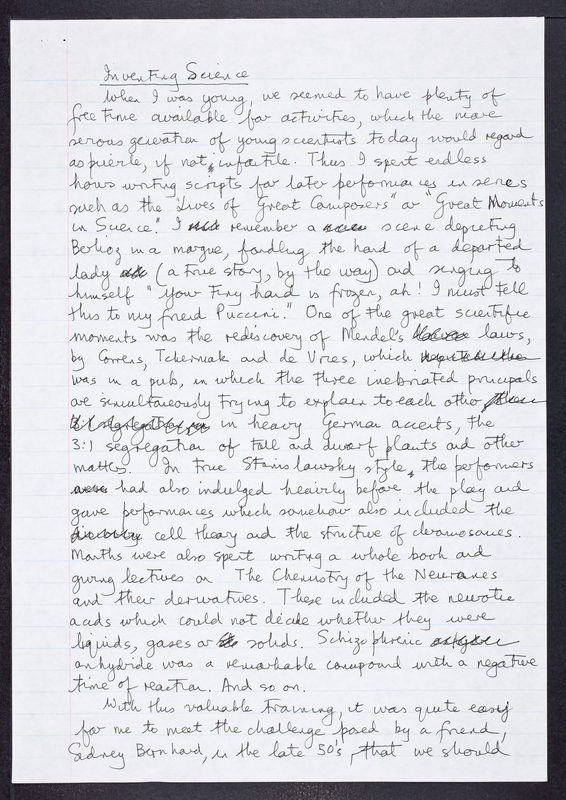 Inventing Science
When I was young, we seemed to have plenty of
free time available for activities, which the more
serious generation of young scientists today would regard
as puerile, if not, infantile. Thus I spent endless
hours writing scripts for later performances in series
such as the "Lives of Great Composers" or "Great Moments
in Science." I remember a scene depicting
Berlioz in a morgue, fondling the hand of a departed
lady (a true story, by the way) and singing to
himself "Your tiny hand is frozen, ah! I must tell
this to my friend Puccini." One of the great scientific
moments was the rediscovery of Mendel's laws,
by Correns, Tchermak and de Vries, which
was in a pub, in which the three inebriated principals
are simultaneously trying to explain to each other
in heavy German accents, the
3:1 segregation of tall and dwarf plants and other
matters. In true Stanislawsky style, the performers
had also indulged heavily before the play and
gave performances which somehow also included the
cell theory and the structure of chromosomes.
Months were also spent writing a whole book and
giving lectures on The Chemistry of the Neuranes
and their derivatives. These included the neurotic
acids which could not decide whether they were
liquids, gases or solids. Schizophrenic
anhydride was a remarkable compound with a negative
time of reaction. And so on.
With this valuable training, it was quite easy
for me to meet the challenge posed by a friend,
Sidney Bernhard, in the late 50's, that we should